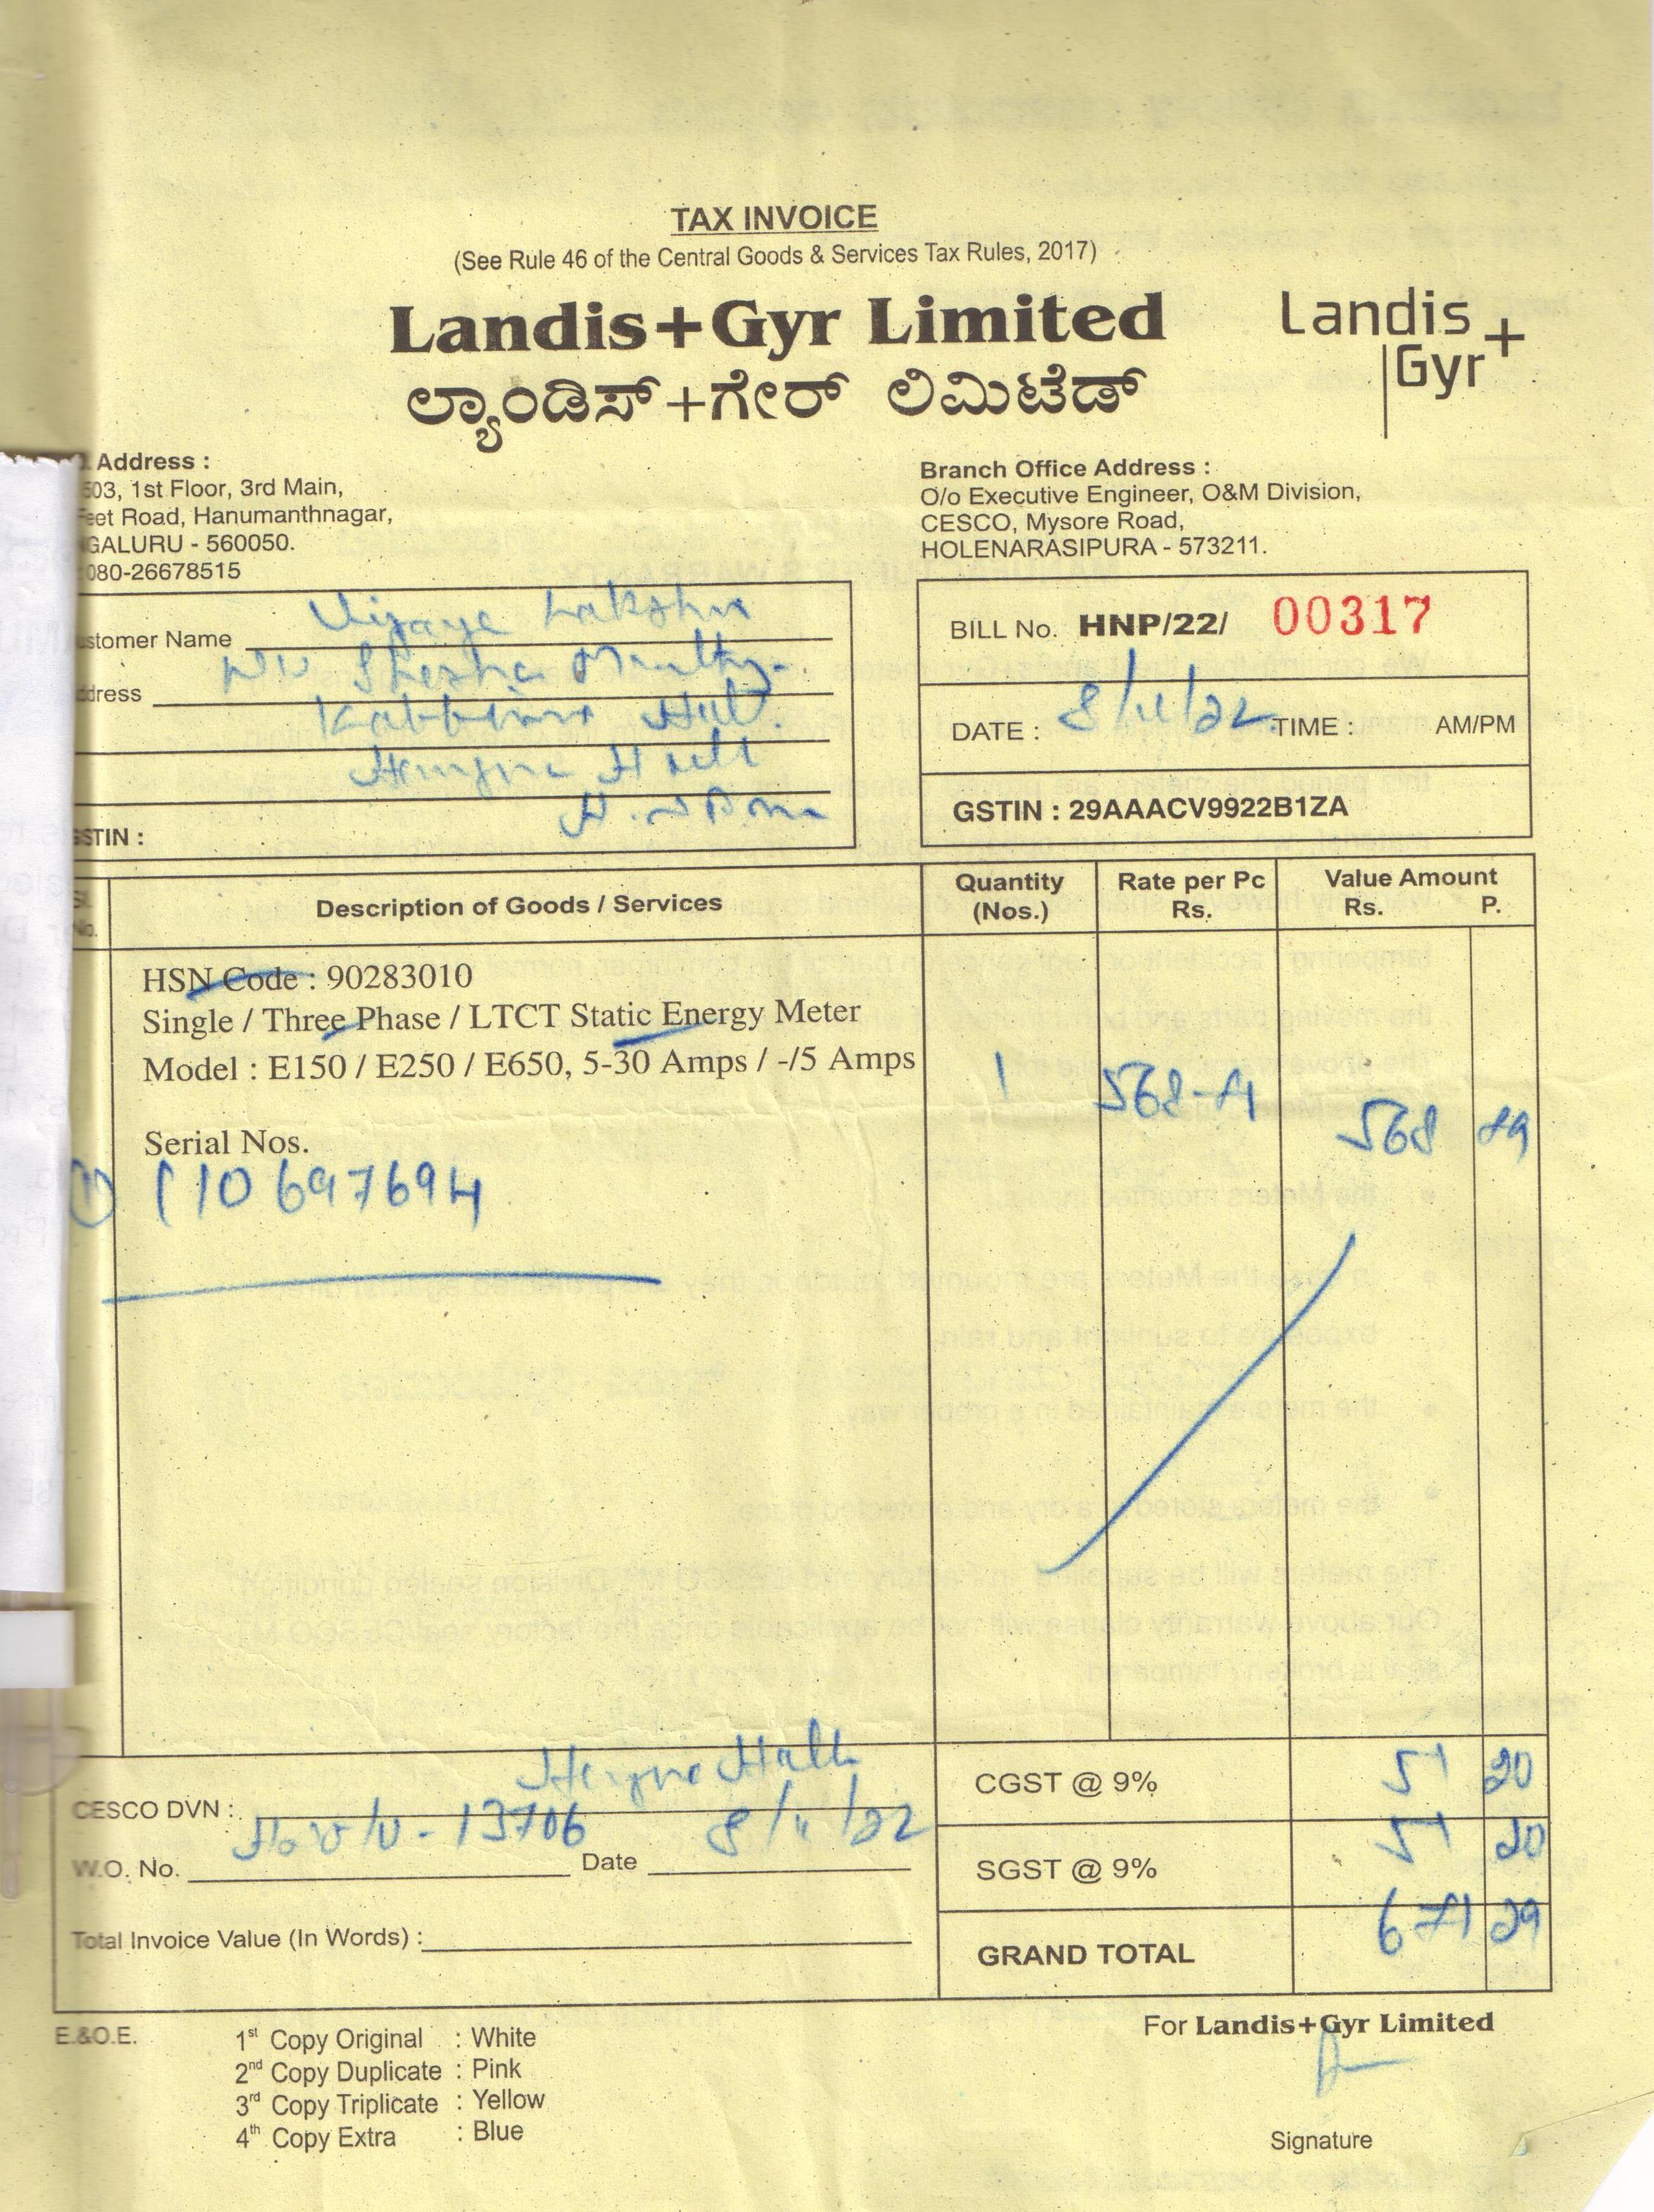 TAX INVOICE
(See Rule 46 of the Central Goods & Services Tax Rules, 2017)
Landis+Gyr Limited
ಲ್ಯಾಂಡಿಸ್+ಗೇರ್ ಲಿಮಿಟೆಡ್
Landis+
Gyr
Address :
503, 1st Floor, 3rd Main,
eet Road, Hanumanthnagar,
GALURU - 560050.
080-26678515
Branch Office Address :
O/o Executive Engineer, O&M Division,
CESCO, Mysore Road,
HOLENARASIPURA - 573211.
stomer Name Vijaya Lakshmi
dress
GSTIN :
BILL No. HNP/22/ 00317
DATE : 8/11/22 TIME : AM/PM
GSTIN : 29AAACV9922B1ZA
Sl. No. Description of Goods / Services Quantity (Nos.) Rate per Pc Rs. Value Amount Rs. P.
HSN Code : 90283010
Single / Three Phase / LTCT Static Energy Meter
Model : E150 / E250 / E650, 5-30 Amps / -/5 Amps 1
568
Serial Nos.
1) 110697694
CESCO DVN :
W.O. No. 13706 Date 8/11/22
Total Invoice Value (In Words) :
CGST @ 9% 51 20
SGST @ 9% 51 20
GRAND TOTAL 671 29
E.&O.E.
1st Copy Original : White
2nd Copy Duplicate : Pink
3rd Copy Triplicate : Yellow
4th Copy Extra : Blue
For Landis+Gyr Limited
Signature